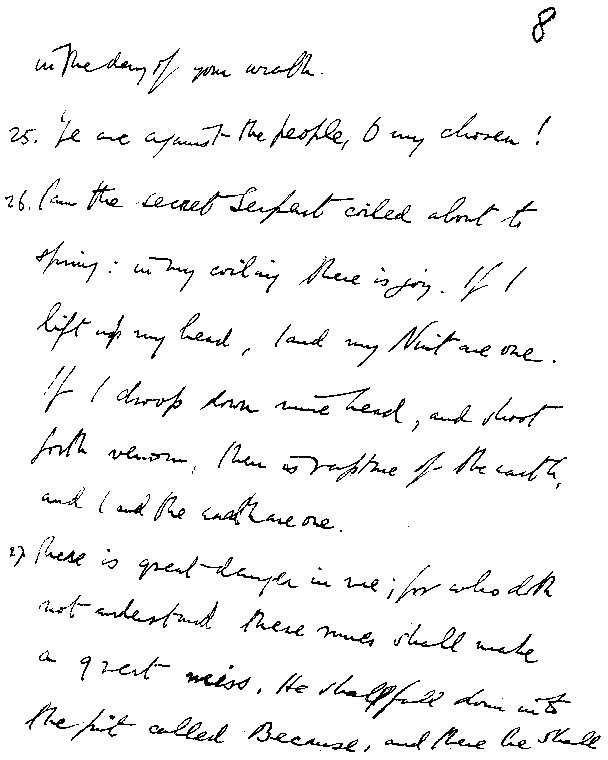 8
in the day of your wrath.
25. Ye are against the people, O my chosen!
26. I am the secret Serpent coiled about to
spring: in my coiling there is joy. If I
lift up my head, I and my Nuit are one.
If I droop down mine head, and shoot
forth venom, then is rapture of the earth,
and I and the earth are one.
27. There is great danger in me; for who doth
not understand these runes shall make
a great miss. He shall fall down into
the pit called Because, and there he shall